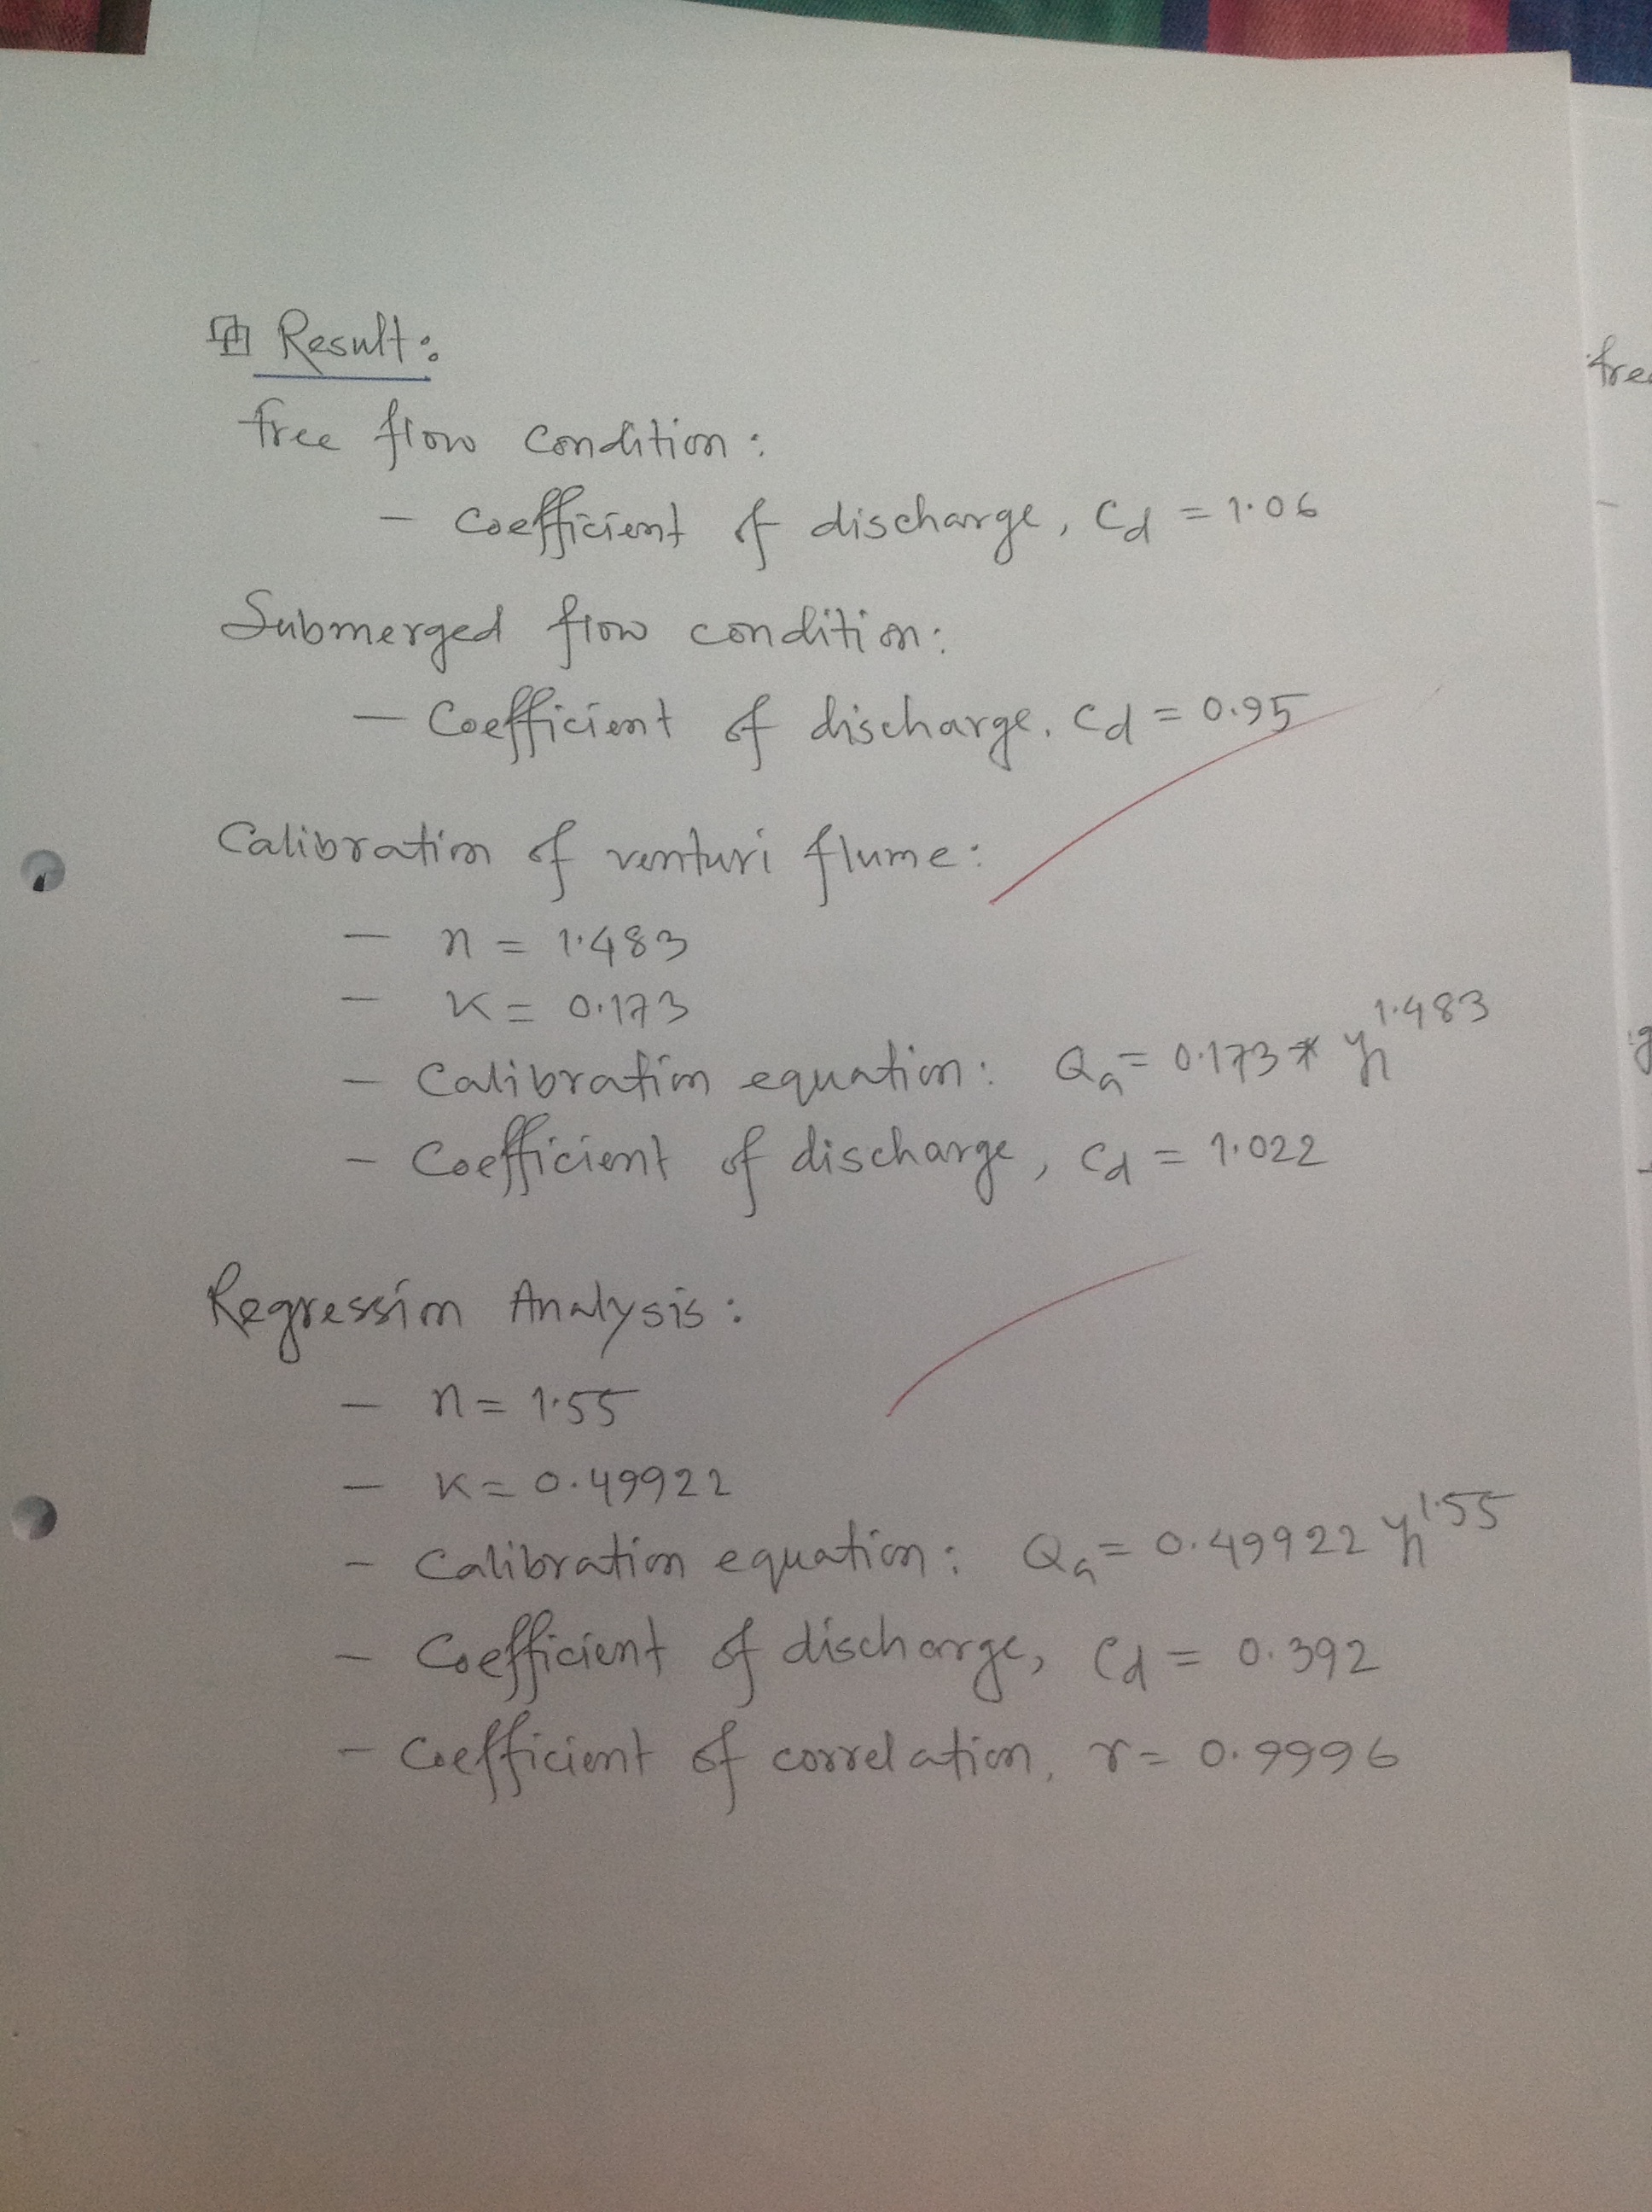 Result:
free flow condition:
- Coefficient of discharge, Cd = 1.06
Submerged flow condition:
- Coefficient of discharge, Cd = 0.95
Calibration of venturi flume:
- n = 1.483
- K = 0.173
- Calibration equation: Qa = 0.173 * y1^1.483
- Coefficient of discharge, Cd = 1.022
Regression Analysis:
- n = 1.55
- K = 0.49922
- Calibration equation: Qa = 0.49922 y1^1.55
- Coefficient of discharge, Cd = 0.392
- Coefficient of correlation, r = 0.9996
free